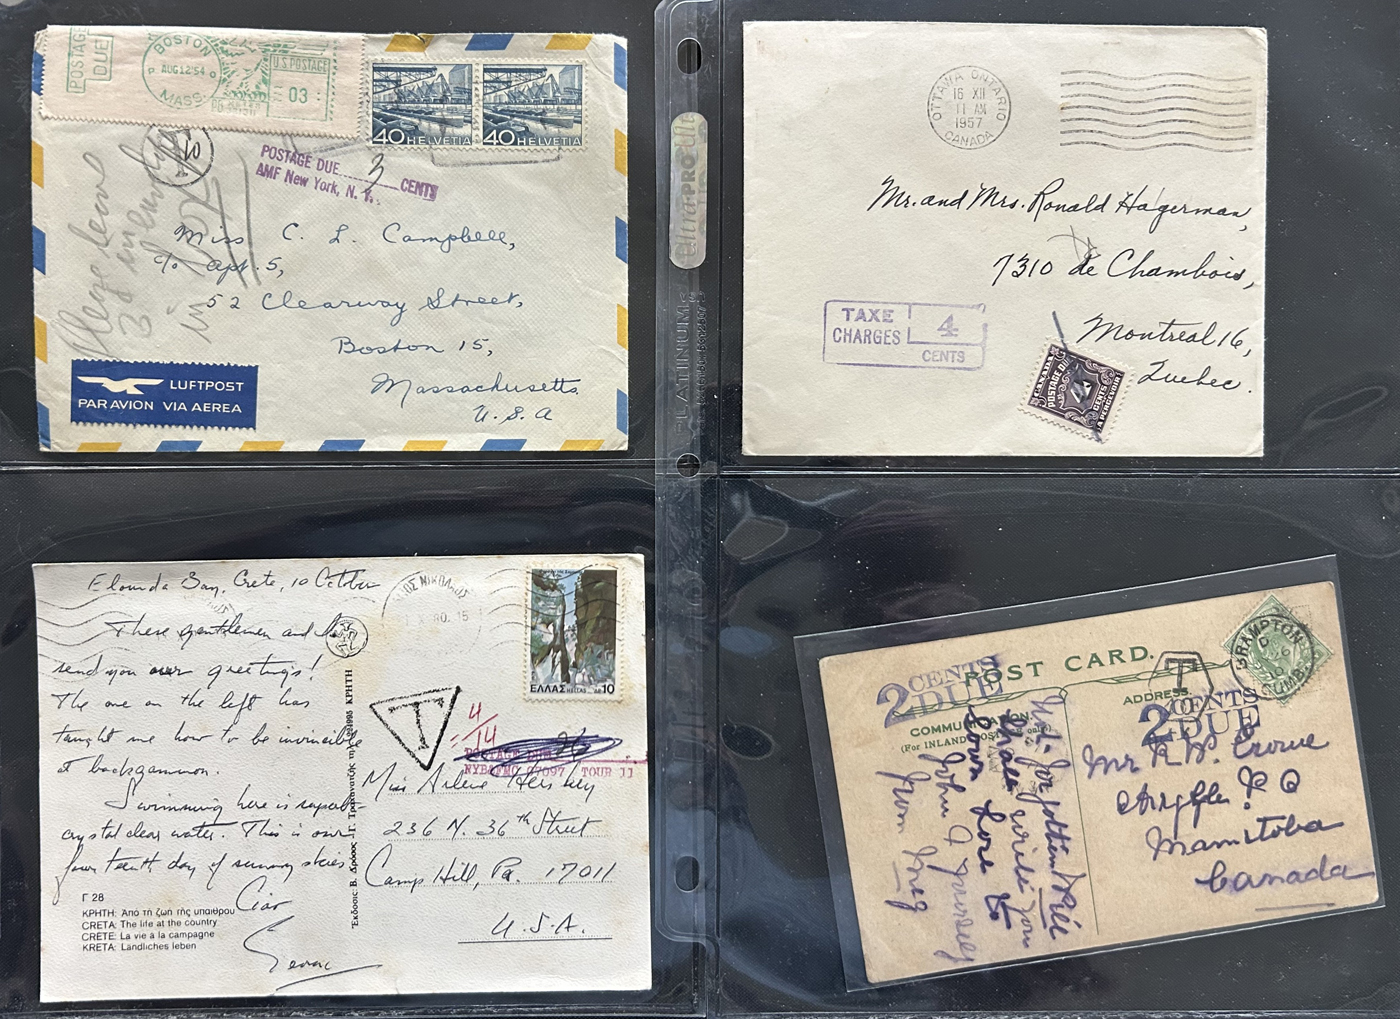 POSTAGE DUE
BOSTON
P AUG12'54 O
MASS.
U.S. POSTAGE
03
POSTAGE DUE 3 CENTS
AMF New York, N. Y.
40 HELVETIA
40 HELVETIA
Please leave
3¢ in
in
Miss C. L. Campbell,
c/o Apt. 5,
52 Clearway Street,
Boston 15,
Massachusetts
U.S.A
LUFTPOST
PAR AVION VIA AEREA
OTTAWA ONTARIO
16 XII
11 AM
1957
CANADA
Mr. and Mrs. Ronald Hagerman,
7310 de Chambois,
Montreal 16,
Quebec.
TAXE
CHARGES
4
CENTS
CANADA
POSTAGE DUE
4
CENTS
A PERCEVOIR
Elounda Bay, Crete, 10 October
These gentlemen and I
send you our greetings!
The one on the left has
taught me how to be invincible
at backgammon.
Swimming here is superb
crystal clear water. This is our
fourteenth day of sunny skies
Ciao
Γ 28
ΚΡΗΤΗ: Από τή ζωη τής υπαίθρου
CRETA: The life at the country
CRETE: La vie à la campagne
KRETA: Ländliches leben
ΟΣ ΝΙΚΟΛΑΟΣ
80.15
ΕΛΛΑΣ HELLAS ΔΡ 10
T
4/14
POSTAGE DUE
NYBAFMO 07097 TOUR 11
Miss Arlene
236 N. 36th Street
Camp Hill, Pa. 17011
U.S.A.
POST CARD.
2 CENTS DUE
COMMUNICATION.
(For INLAND POSTAGE only)
ADDRESS
T
10
2 CENTS DUE
BRAMPTON
CUMB
Mr R. W. Crowe
P O
Manitoba
Canada
Not forgotten
shall write you
soon Love to
John &
from Meg